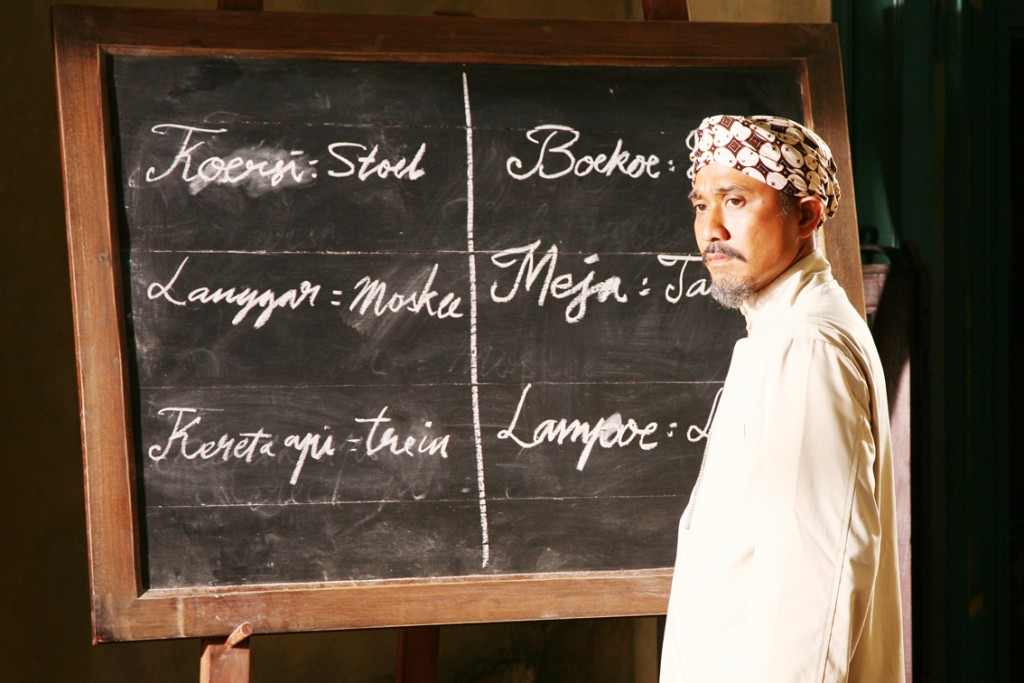 Koersi : Stoel
Langgar = Moskee
Kereta api = trein
Boekoe :
Meja : Ta
Lampoe : L